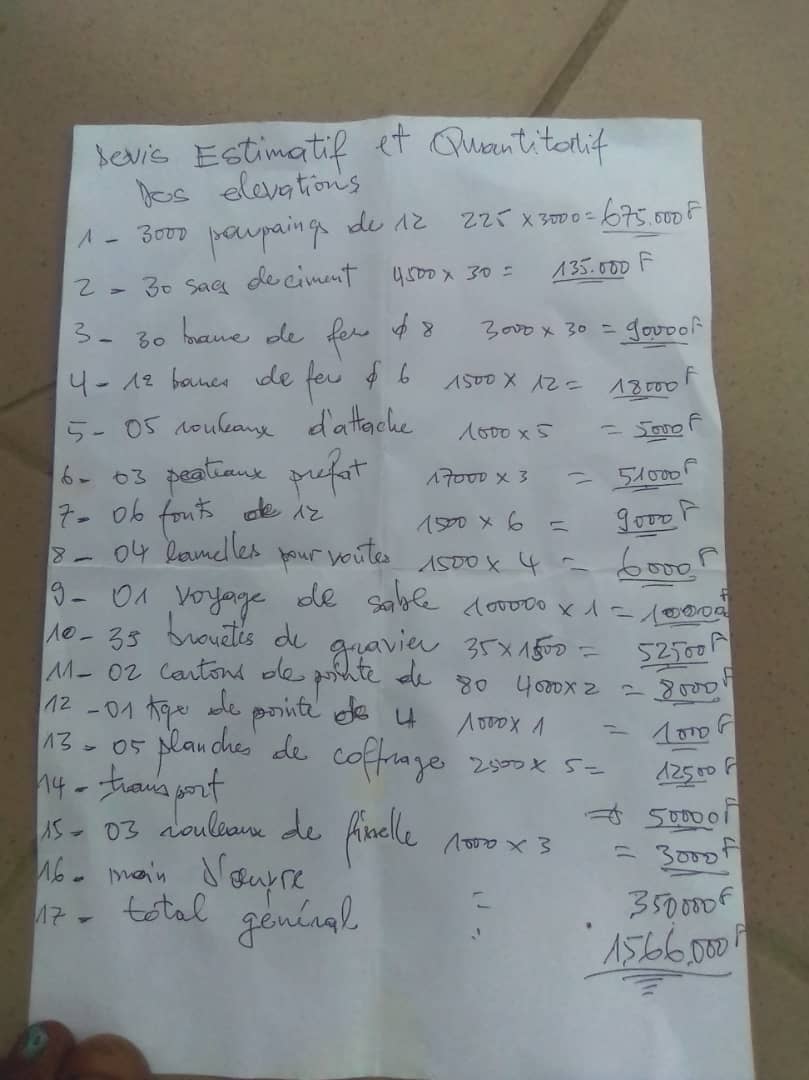 Devis Estimatif et Quantitatif
Des elevations
1 - 3000 parpaings de 12 225 x 3000 = 675.000 F
2 - 30 sacs de ciment 4500 x 30 = 135.000 F
3 - 30 barre de fer ϕ 8 3000 x 30 = 90.000 F
4 - 12 barres de fer ϕ 6 1500 x 12 = 18000 F
5 - 05 rouleaux d'attache 1000 x 5 = 5000 F
6 - 03 poteaux prefat 17000 x 3 = 51000 F
7 - 06 fonts de 12 1500 x 6 = 9000 F
8 - 04 lamelles pour voutes 1500 x 4 = 6000 F
9 - 01 voyage de sable 100000 x 1 = 100000 F
10 - 35 brouetes de gravier 35 x 1500 = 52500 F
11 - 02 cartons de pointe de 80 4000 x 2 = 8000 F
12 - 01 kge de pointe de 4 1000 x 1 = 1000 F
13 - 05 planches de coffrage 2500 x 5 = 12500 F
14 - transport → 50000 F
15 - 03 rouleaux de fixelle 1000 x 3 = 3000 F
16 - main d'œuvre = 350.000 F
17 - total général : 1.566.000 F